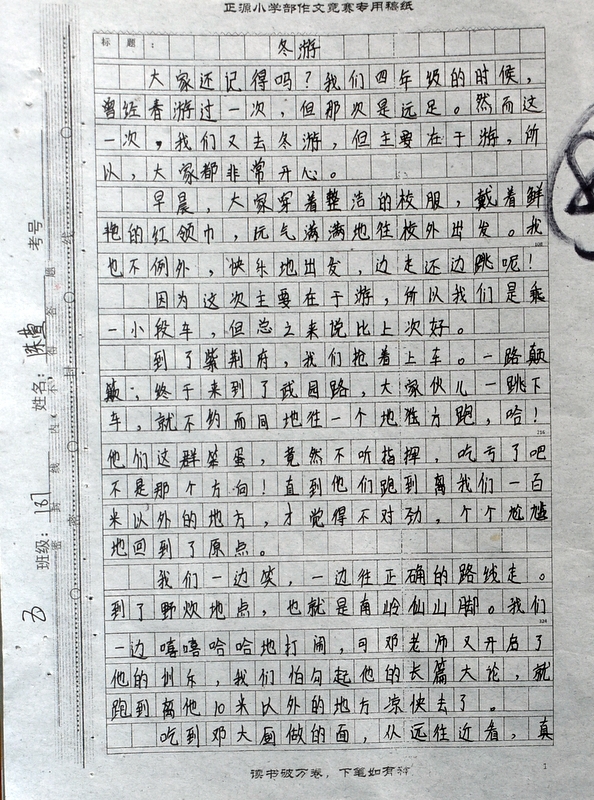 正源小学部作文竞赛专用稿纸
标题：冬游
大家还记得吗？我们四年级的时候，
曾经春游过一次，但那次是远足。然而这
一次，我们又去冬游，但主要在于游，所
以，大家都非常开心。
早晨，大家穿着整洁的校服，戴着鲜
艳的红领巾，玩气满满地往校外出发。我
也不例外，快乐地出发，边走还边跳呢！
因为这次主要在于游，所以我们是乘
一小段车，但总之来说比上次好。
到了紫荆府，我们抢着上车。一路颠
簸；终于来到了武园路，大家伙儿一跳下
车，就不约而同地往一个地方跑，哈！
216
他们这群笨蛋，竟然不听指挥，吃亏了吧
不是那个方向！直到他们跑到离我们一百
米以外的地方，才觉得不对劲，个个尴尬
地回到了原点。
我们一边笑，一边往正确的路线走。
到了野炊地点，也就是南岭仙山脚。我们
324
一边嘻嘻哈哈地打闹，可邓老师又开启了
他的训乐，我们怕勾起他的长篇大论，就
跑到离他10米以外的地方凉快去了。
吃到邓大厨做的面，从远往近看，真
读书破万卷，下笔如有神
1
考号
姓名：
班级：
137